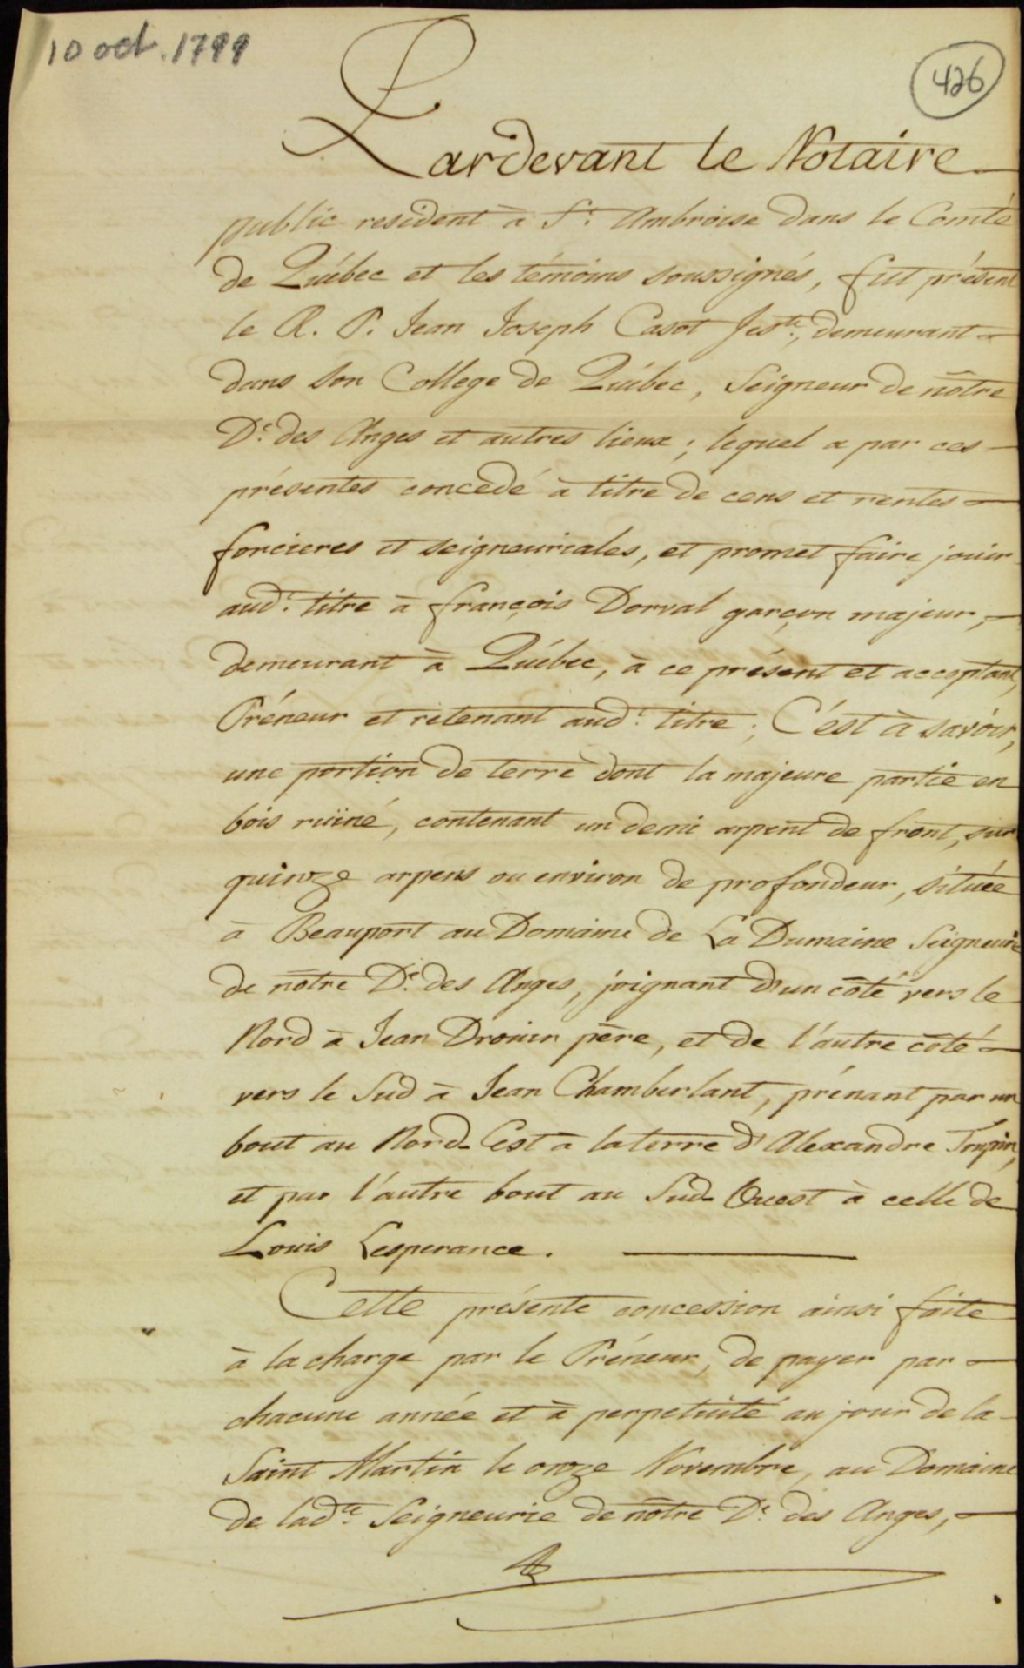 10 oct. 1799
426
Pardevant le Notaire
public resident à St. Ambroise dans le Comté
de Québec et les témoins soussignés, fut présent
le R. P. Jean Joseph Casot Jeste., demeurant
dans son College de Québec, Seigneur de nôtre
De. des Anges et autres lieux ; lequel a par ces
présentes concedé à titre de cens et rentes
foncieres et seigneuriales, et promet faire jouir
aud. titre à françois Dorval garçon majeur,
demeurant à Québec, à ce présent et acceptant,
Préneur et retenant aud. titre ; C'est à savoir,
une portion de terre dont la majeure partie en
bois ruiné, contenant un demi arpent de front, sur
quinze arpens ou environ de profondeur, située
à Beauport au Domaine de La Dumaine Seigneurie
de nôtre De. des Anges, joignant d'un côté vers le
Nord à Jean Drouin père, et de l'autre côté
vers le Sud à Jean Chamberlant, prénant par un
bout au Nord-Est à la terre d'Alexandre Toupin,
et par l'autre bout au Sud-Ouest à celle de
Louis Lesperance.
Cette présente concession ainsi faite
à la charge par le Préneur, de payer par
chacune année et à perpetuité au jour de la
Saint Martin le onze Novembre, au Domaine
de ladte. Seigneurie de nôtre De. des Anges,